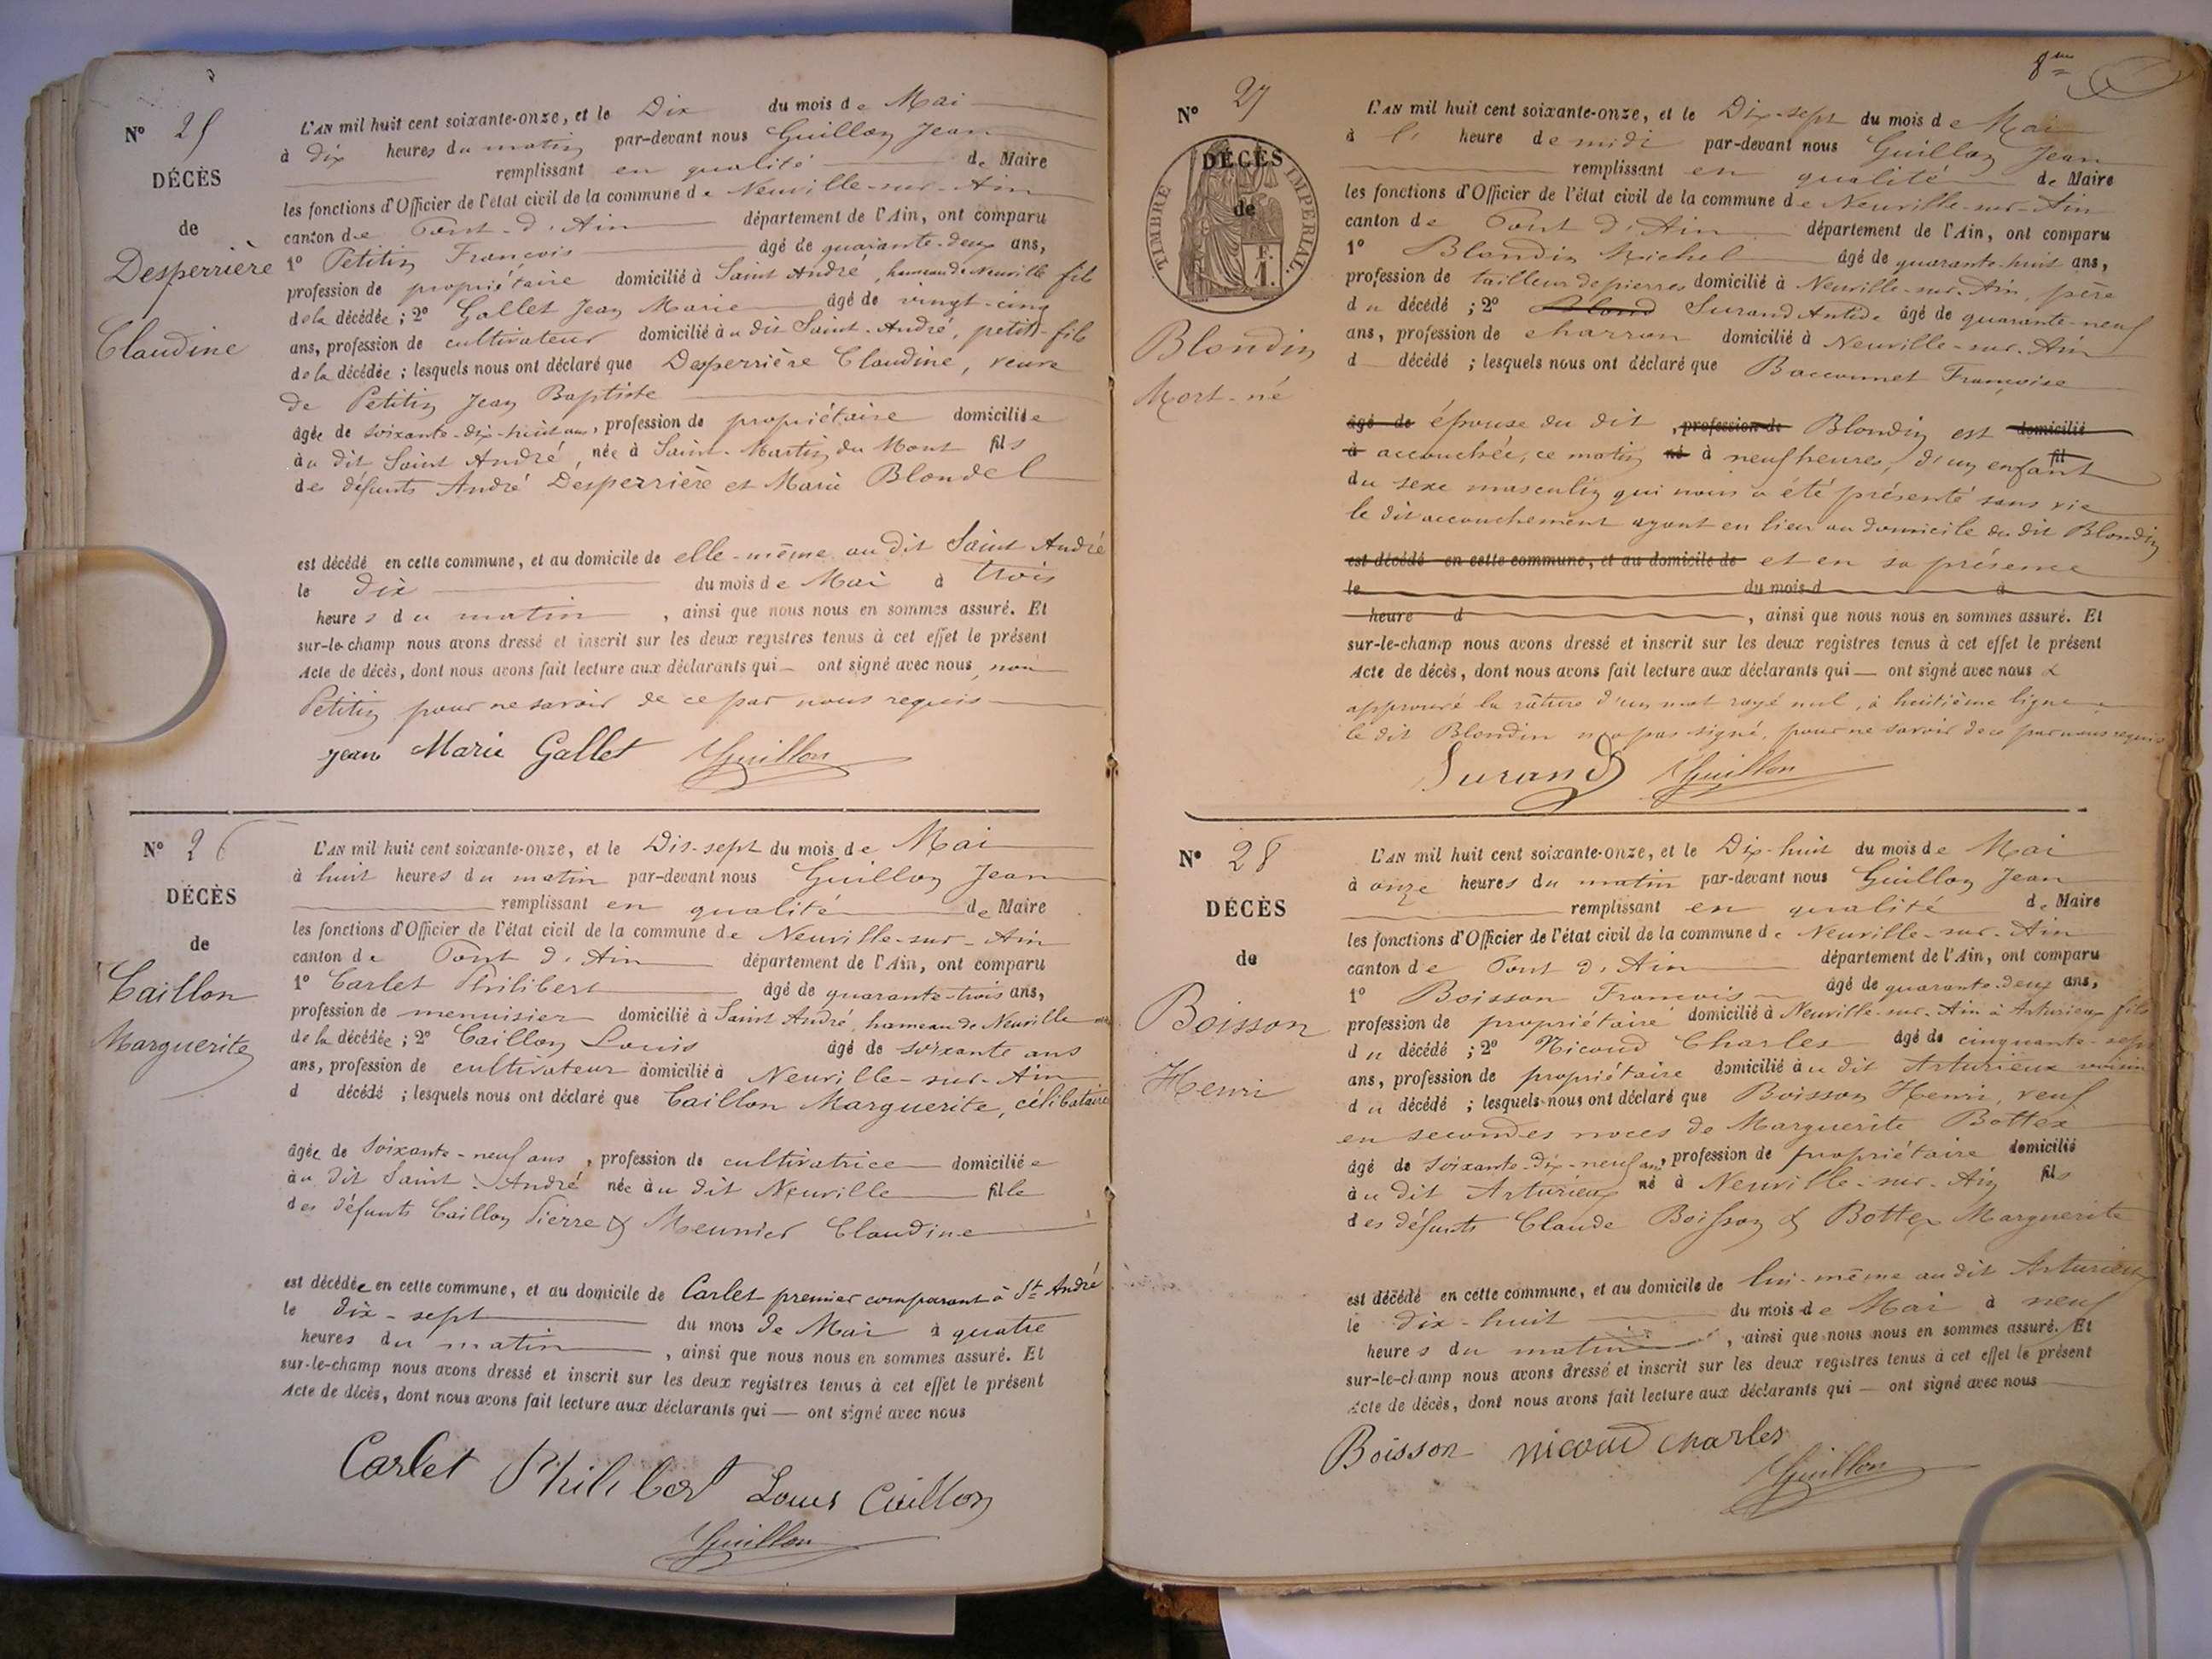 N° 25
DÉCÈS
de
Desperrière
Claudine
L'AN mil huit cent soixante-onze, et le Dix du mois de Mai
à dix heures du matin par-devant nous Guillon Jean
remplissant en qualité de Maire
les fonctions d'Officier de l'état civil de la commune de Neuville-sur-Ain
canton de Pont-d'Ain département de l'Ain, ont comparu
1° Petitin François âgé de quarante-deux ans,
profession de propriétaire domicilié à Saint André, hameau de Neuville fils
de la décédée ; 2° Gallet Jean Marie âgé de vingt-cinq
ans, profession de cultivateur domicilié au dit Saint-André, petit-fils
de la décédée ; lesquels nous ont déclaré que Desperrière Claudine, veuve
de Petitin Jean Baptiste
âgée de soixante-dix-huit ans, profession de propriétaire domiciliée
au dit Saint André, née à Saint-Martin du Mont fils
des défunts André Desperrière et Marie Blondel
est décédé en cette commune, et au domicile de elle-même au dit Saint André
le dix du mois de Mai à trois
heures du matin, ainsi que nous nous en sommes assuré. Et
sur-le-champ nous avons dressé et inscrit sur les deux registres tenus à cet effet le présent
Acte de décès, dont nous avons fait lecture aux déclarants qui — ont signé avec nous, non
Petitin pour ne savoir de ce par nous requis
jean Marie Gallet JGuillon
N° 26
DÉCÈS
de
Caillon
Marguerite
L'AN mil huit cent soixante-onze, et le Dix-sept du mois de Mai
à huit heures du matin par-devant nous Guillon Jean
remplissant en qualité de Maire
les fonctions d'Officier de l'état civil de la commune de Neuville-sur-Ain
canton de Pont d'Ain département de l'Ain, ont comparu
1° Carlet Philibert âgé de quarante-trois ans,
profession de menuisier domicilié à Saint André, hameau de Neuville
de la décédée ; 2° Caillon Louis âgé de soixante ans
ans, profession de cultivateur domicilié à Neuville-sur-Ain
d décédé ; lesquels nous ont déclaré que Caillon Marguerite, célibataire
âgée de soixante-neuf ans, profession de cultivatrice domiciliée
au dit Saint-André née au dit Neuville fille
des défunts Caillon Pierre & Meunier Claudine
est décédée en cette commune, et au domicile de Carlet premier comparant à St André
le dix-sept du mois de Mai à quatre
heures du matin, ainsi que nous nous en sommes assuré. Et
sur-le-champ nous avons dressé et inscrit sur les deux registres tenus à cet effet le présent
Acte de décès, dont nous avons fait lecture aux déclarants qui — ont signé avec nous
Carlet Philibert Louis Caillon
JGuillon
8me
N° 27
DÉCÈS
de
TIMBRE IMPERIAL.
F.
1.
Blondin
Mort-né
L'AN mil huit cent soixante-onze, et le Dix-sept du mois de Mai
à l' heure de midi par-devant nous Guillon Jean
remplissant en qualité de Maire
les fonctions d'Officier de l'état civil de la commune de Neuville-sur-Ain
canton de Pont d'Ain département de l'Ain, ont comparu
1° Blondin Michel âgé de quarante-huit ans,
profession de tailleur de pierres domicilié à Neuville-sur-Ain, père
du décédé ; 2° Blond Surand Antide âgé de quarante-neuf
ans, profession de charron domicilié à Neuville-sur-Ain
d décédé ; lesquels nous ont déclaré que Baccounet Françoise
âgé de épouse du dit, profession de Blondin est domicilié
à accouchée, ce matin né à neuf heures, d'un enfant fil
du sexe masculin qui nous a été présenté sans vie
le dit accouchement ayant eu lieu au domicile du dit Blondin
est décédé en cette commune, et au domicile de et en sa présence
le du mois d à
heure d, ainsi que nous nous en sommes assuré. Et
sur-le-champ nous avons dressé et inscrit sur les deux registres tenus à cet effet le présent
Acte de décès, dont nous avons fait lecture aux déclarants qui — ont signé avec nous &
approuvé la râture d'un mot rayé nul, à huitième ligne
le dit Blondin n'a pas signé, pour ne savoir de ce par nous requis
Surand JGuillon
N° 28
DÉCÈS
de
Boisson
Henri
L'AN mil huit cent soixante-onze, et le Dix-huit du mois de Mai
à onze heures du matin par-devant nous Guillon Jean
remplissant en qualité de Maire
les fonctions d'Officier de l'état civil de la commune de Neuville-sur-Ain
canton de Pont d'Ain département de l'Ain, ont comparu
1° Boisson François âgé de quarante-deux ans,
profession de propriétaire domicilié à Neuville-sur-Ain à Arturieux fils
du décédé ; 2° Nicoud Charles âgé de cinquante-sept
ans, profession de propriétaire domicilié au dit Arturieux voisin
du décédé ; lesquels nous ont déclaré que Boisson Henri, veuf
en secondes noces de Marguerite Bottex
âgé de soixante-dix-neuf ans, profession de propriétaire domicilié
au dit Arturieux né à Neuville-sur-Ain fils
des défunts Claude Boisson & Bottex Marguerite
est décédé en cette commune, et au domicile de lui-même au dit Arturieux
le dix-huit du mois de Mai à neuf
heures du matin, ainsi que nous nous en sommes assuré. Et
sur-le-champ nous avons dressé et inscrit sur les deux registres tenus à cet effet le présent
Acte de décès, dont nous avons fait lecture aux déclarants qui — ont signé avec nous
Boisson nicoud charles
JGuillon